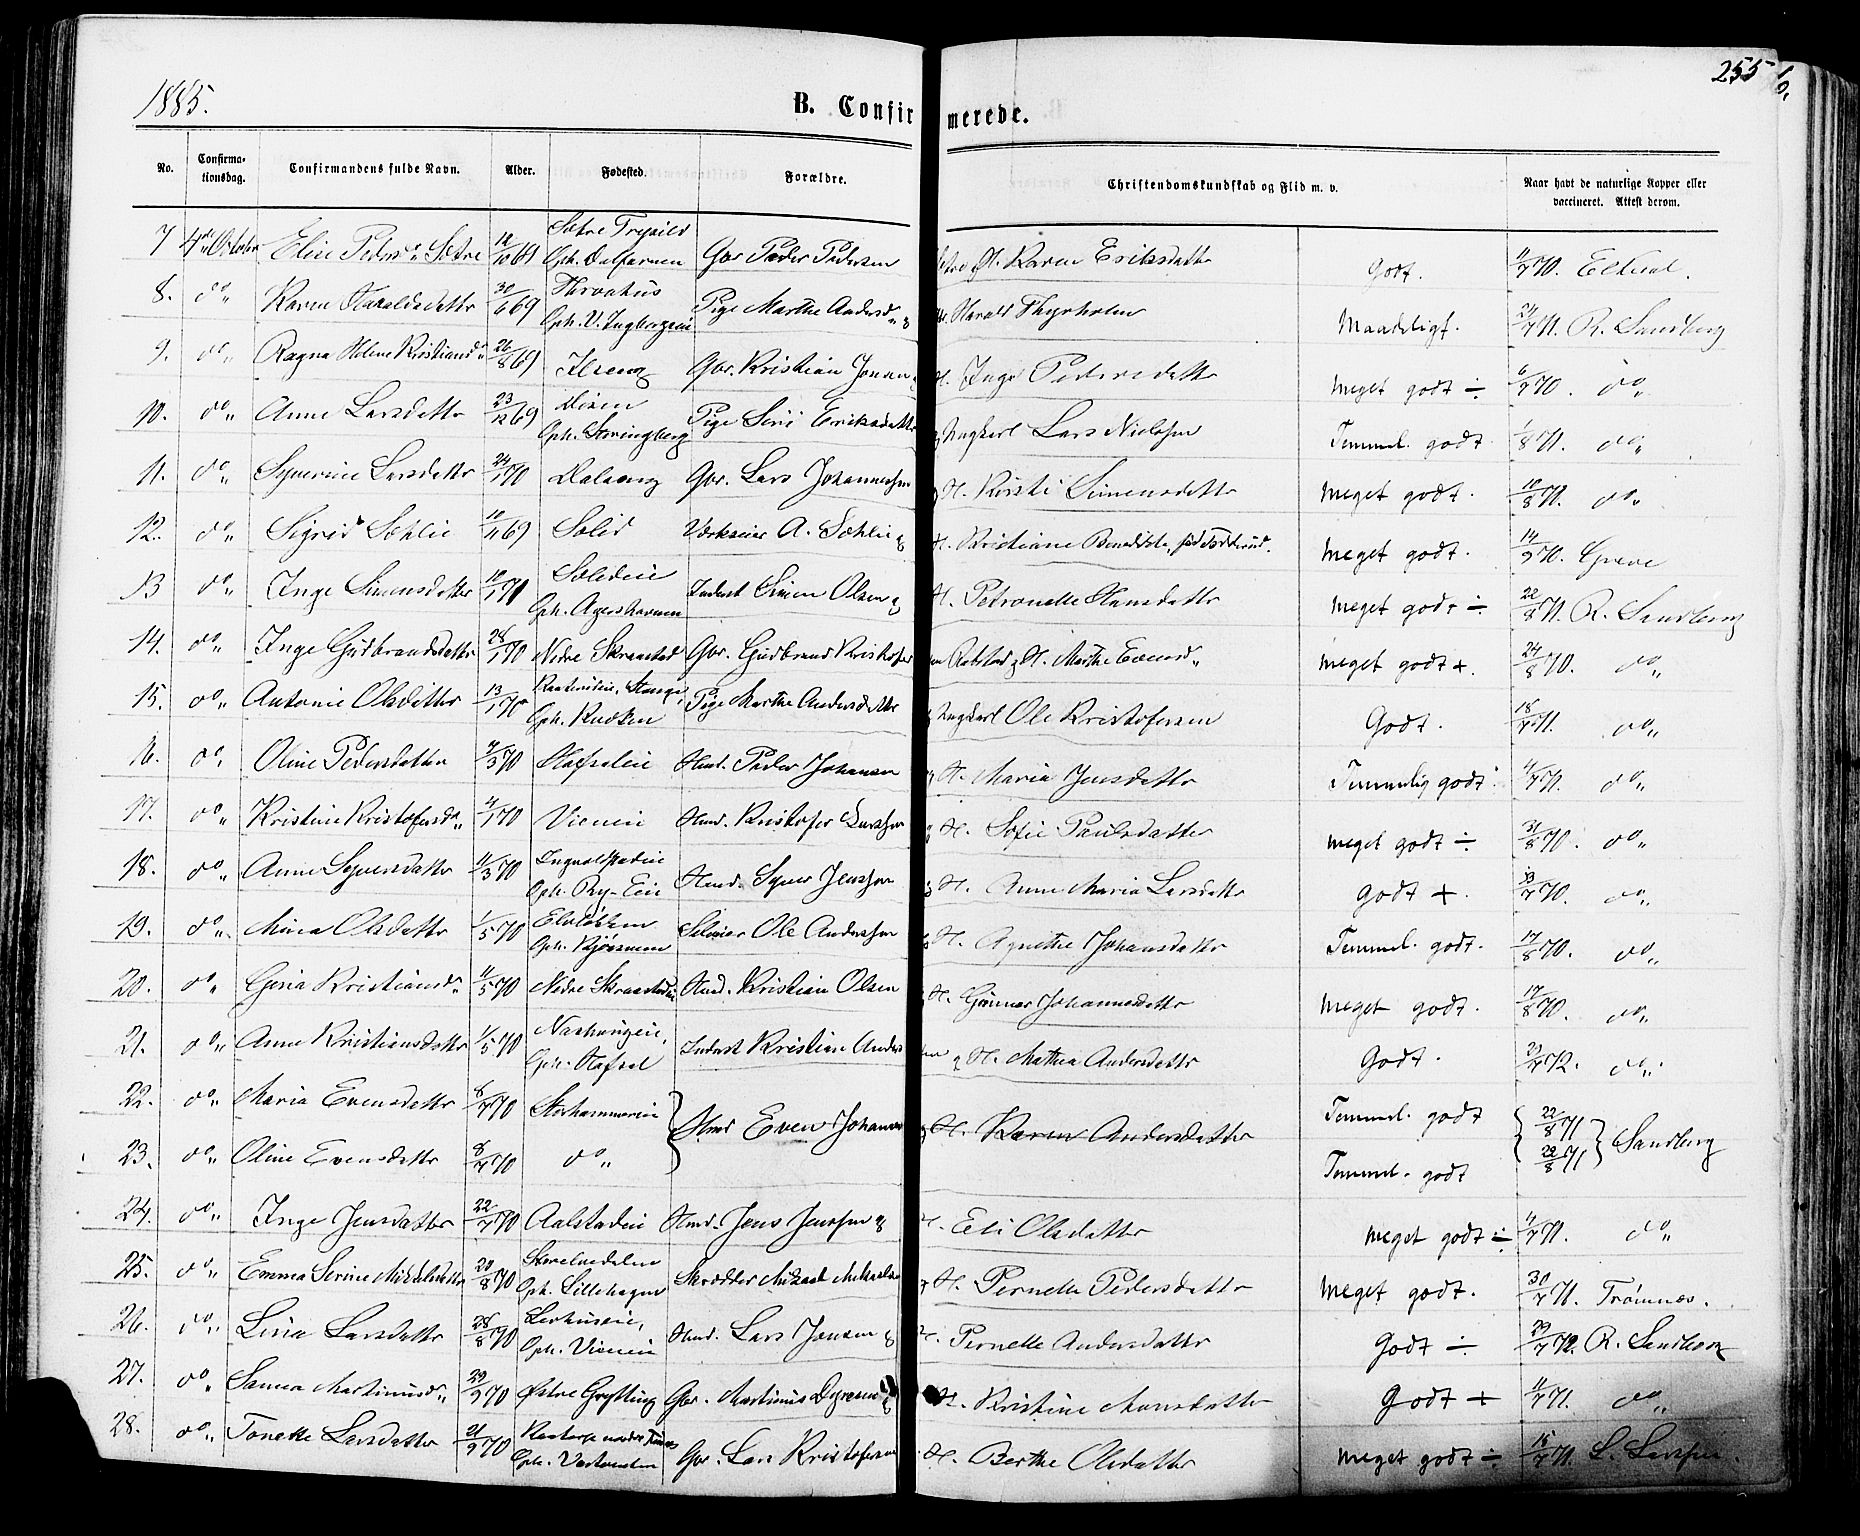 1885.
B. Confirmerede.
255
No.
Confirma-
tionsdag.
Confirmandens fulde Navn.
Alder.
Fødested.
Forældre.
Christendomskundskab og Flid m. v.
Naar havt de naturlige Kopper eller
vaccineret. Attest derom.
7 4de October Eline Peders Sætre 12/10 69 Sætre Trysild Gbr Peder Pedersen Sætre & H. Karen Eriksdatter Godt. 11/7 70.
8. do Karen Haraldsdatter 30/6 69 Pige Marthe Andersd. & Harald Thyrholm Maadeligt. 24/7 71. R. Sandberg
9. do Ragna Helene Kristiansd. 26/8 69 Ilseng Gbr. Kristian Jonsen & H. Inge Pedersdatter Meget godt ÷ 6/7 70. do
10. do Anne Larsdatter 23/12 69 Oph. Stemingberg Pige Siri Eriksdatter & Ungkarl Lars Nielsen Temmel. godt 1/8 71. do
11. do Syverine Larsdatter 24/1 70 Dalseng Gbr. Lars Johannessen & H. Kirsti Simensdatter Meget godt. 10/8 71. do
12. do Sigrid Sæhlie 10/11 69 Solid Værkseier A. Sæhlie & H. Kristiane Benedikte, Meget godt. 14/9 70. Greve
13 do Inge Simensdatter 10/1 70 Oph. Agershavnen Inderst Simen Olsen & H. Petronelle Hansdatter Meget godt ÷ 22/8 71. R. Sandberg
14. do Inge Gudbrandsdatter 28/1 70 Nedre Skraastad Gbr. Gudbrand Kristofersen & H. Marthe Evensd. Meget godt +. 24/8 70. do
15. do Antonie Olsdatter 13/1 70 Stange, Pige Marthe Andersdatter & Ungkarl Ole Kristofersen Godt. 18/7 71. do
16. do Oline Pedersdatter 4/3 70 Hafsaleie Hmd. Peder Johansen & H. Maria Jensdatter Temmelig godt 4/7 71. do
17. do Kristine Kristofersd. 4/1 70 Vieneie Hmd. Kristofer Larssen & H. Sofie Paulsdatter Meget godt ÷ 31/8 70. do
18. do Anne Syversdatter 11/3 70 Oph. Ry-Eie Hmd. Syver Jenssen & H. Anne Maria Larsdatter Godt +. 13/7 70. do
19. do Mina Olsdatter 1/5 70 Selveier Ole Anderssen & H. Agnethe Johansdatter Temmel. godt. 17/8 70. do
20. do Gina Kristiansd. 11/5 70 Nedre Skraastadeie Hmd. Kristian Olsen & H. Gunner Johannesdatter Meget godt. 17/8 70. do
21. do Anne Kristiansdatter 1/5 70 Oph. Hafsal Inderst Kristian Anderssen & H. Mathea Andersdatter Godt. 23/7 72. do
22. do Maria Evensdatter 8/7 70 Storhammereie Hmd Even Johansen & H. Karen Andersdatter Temmel. godt 22/8 71 Sandberg
23. do Oline Evensdatter 8/7 70 do Temmel. godt 22/8 71
24. do Inge Jensdatter 22/7 70 Aalstadeie Hmd. Jens Jenssen & H. Eli Olsdatter Meget godt ÷ 4/7 71. do
25. do Emma Serine Mikkelsdatter 20/8 70 Oph. Lillehagen Skrædder Mikael Mikaelsen & H. Pernelle Pedersdatter Meget godt. 30/7 71. Trømnæs.
26. do Lina Larsdatter 28/8 70 Oph. Vieneie Hmd. Lars Jensen & H. Pernelle Andersdatter Godt ÷ 29/7 72. R. Sandberg
27. do Samea Martinusd. 29/9 70 Østre Grytting Gbr. Martinus Dyresen & H. Kristine Monsdatter Godt + 11/7 71. do
28. do Tonette Larsdatter 21/9 70 Gbr. Lars Kristofersen H. Berthe Olsdatter Meget godt ÷ 15/7 71. L. Larssen.